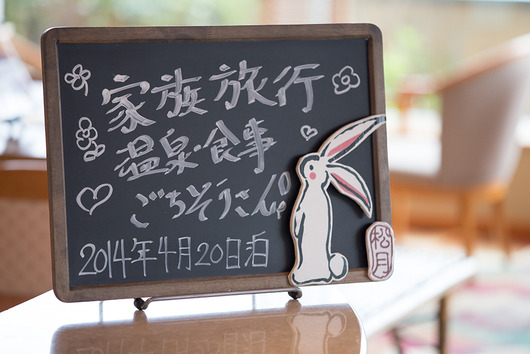 家族旅行
温泉・食事
ごちそうさん。
2014年4月20日泊
松月